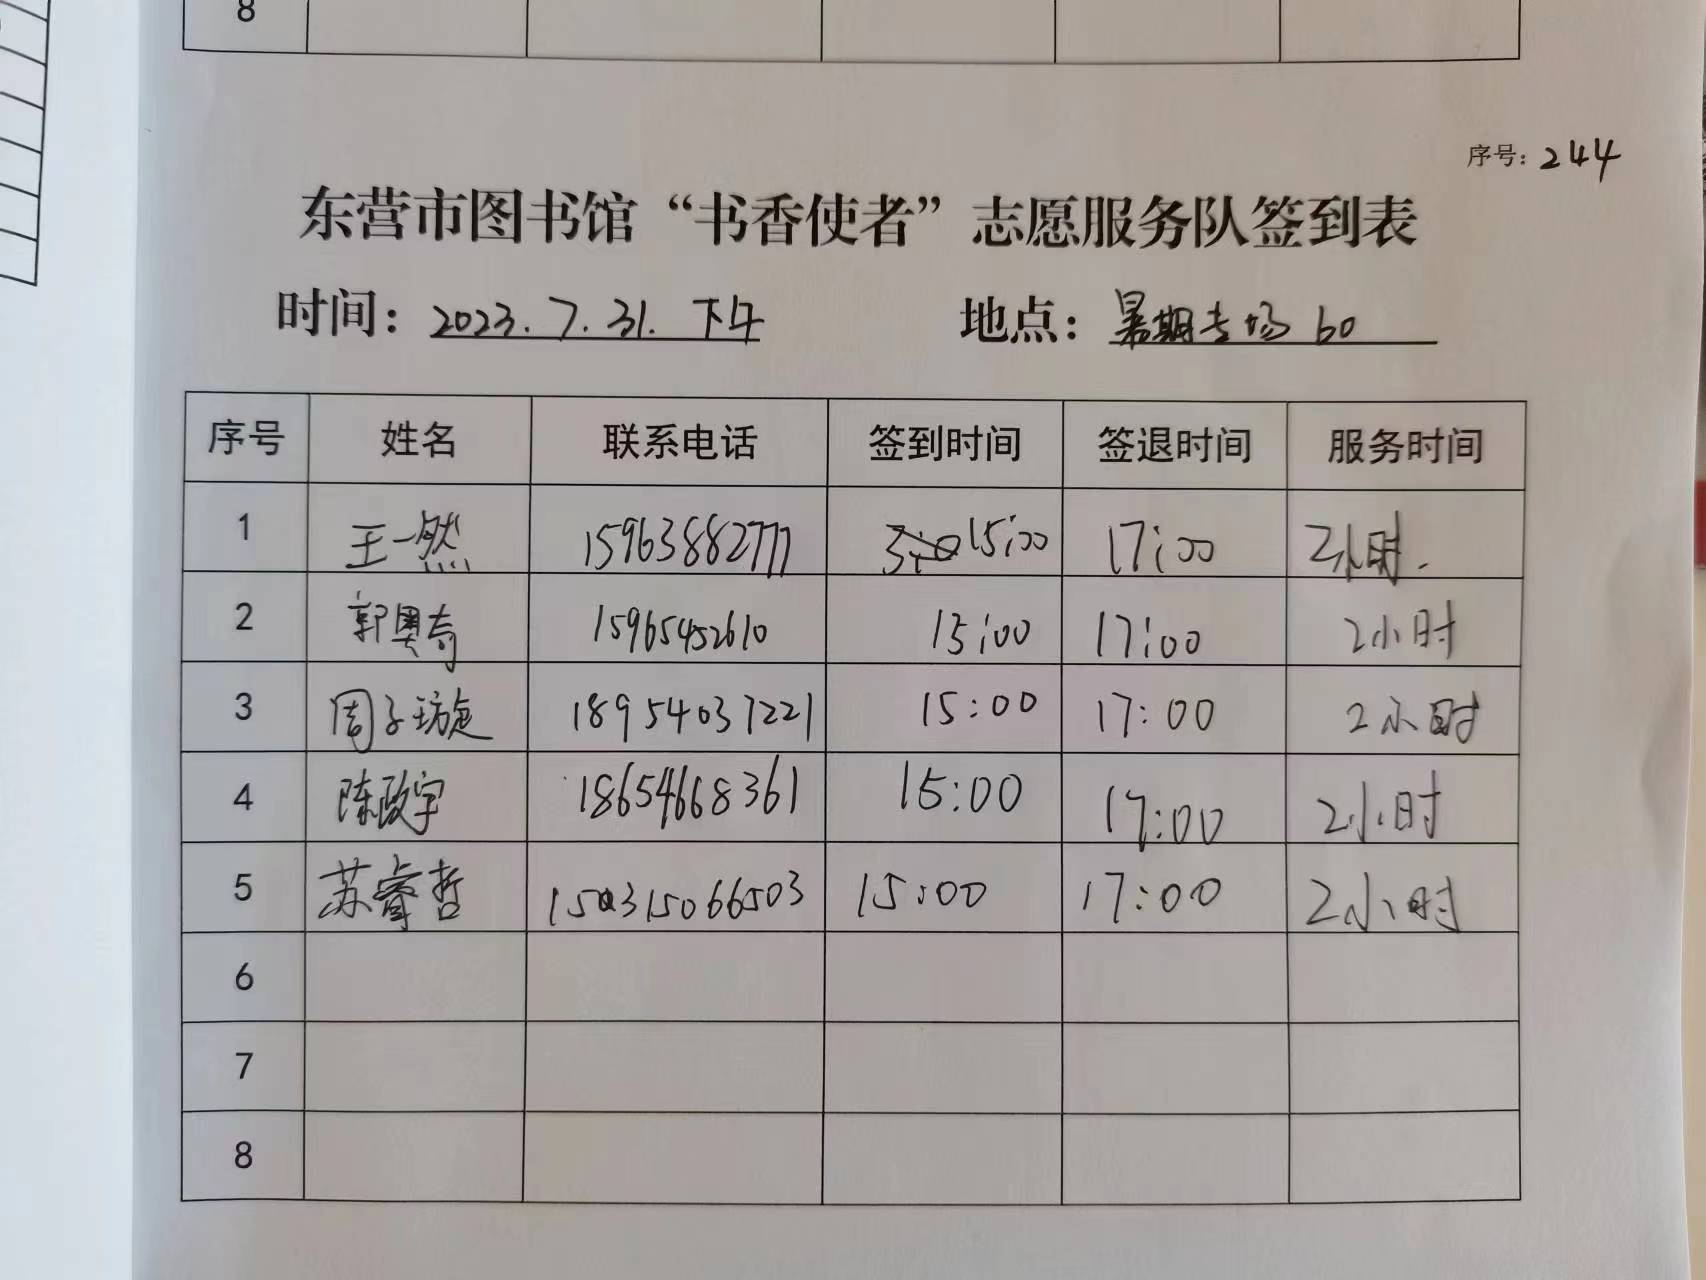 8
序号：244
东营市图书馆“书香使者”志愿服务队签到表
时间：2023.7.31.下午 地点：暑期专场60
序号 姓名 联系电话 签到时间 签退时间 服务时间
1 王一然 15963882777 15:00 17:00 2小时.
2 郭奥奇 15965452610 15:00 17:00 2小时
3 周子璇 18954037221 15:00 17:00 2小时
4 陈政宇 18654668361 15:00 17:00 2小时
5 苏睿哲 15:00 17:00 2小时
6
7
8